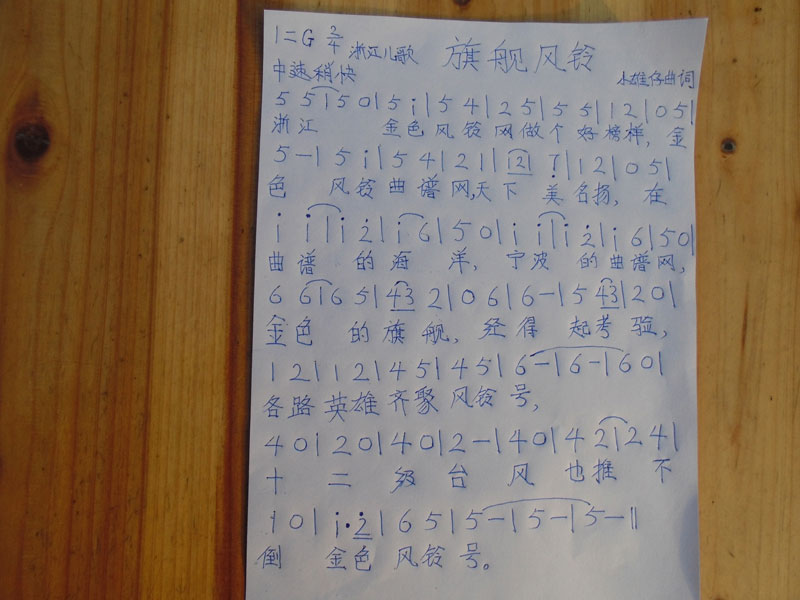 1=G 2/4 浙江儿歌 旗舰风铃
中速稍快 小雄仔曲词
5 5 | 5 0 | 5 i | 5 4 | 2 5 | 5 5 | 1 2 | 0 5 |
浙江 金色风铃网做个好榜样,金
5 - | 5 i | 5 4 | 2 1 | 2 7 | 1 2 | 0 5 |
色 风铃曲谱网,天下美名扬,在
i i | i 2 | i 6 | 5 0 | i i | i 2 | i 6 | 5 0 |
曲谱的海洋,宁波的曲谱网,
6 6 | 6 5 | 43 2 | 0 6 | 6 - | 5 43 | 2 0 |
金色的旗舰,经得起考验,
1 2 | 1 2 | 4 5 | 4 5 | 6 - | 6 - | 6 0 |
各路英雄齐聚风铃号,
4 0 | 2 0 | 4 0 | 2 - | 4 0 | 4 2 | 2 4 |
十二级台风也推不
1 0 | i· 2 | 6 5 | 5 - | 5 - | 5 - ||
倒 金色风铃号。